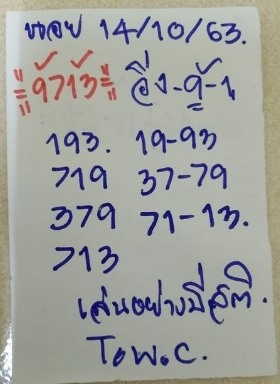 หวย 14/10/63.
9713 วิ่ง-9-1
193. 19-93
719 37-79
379 71-13.
713
เล่นอย่างมีสติ.
T๐พ.C.